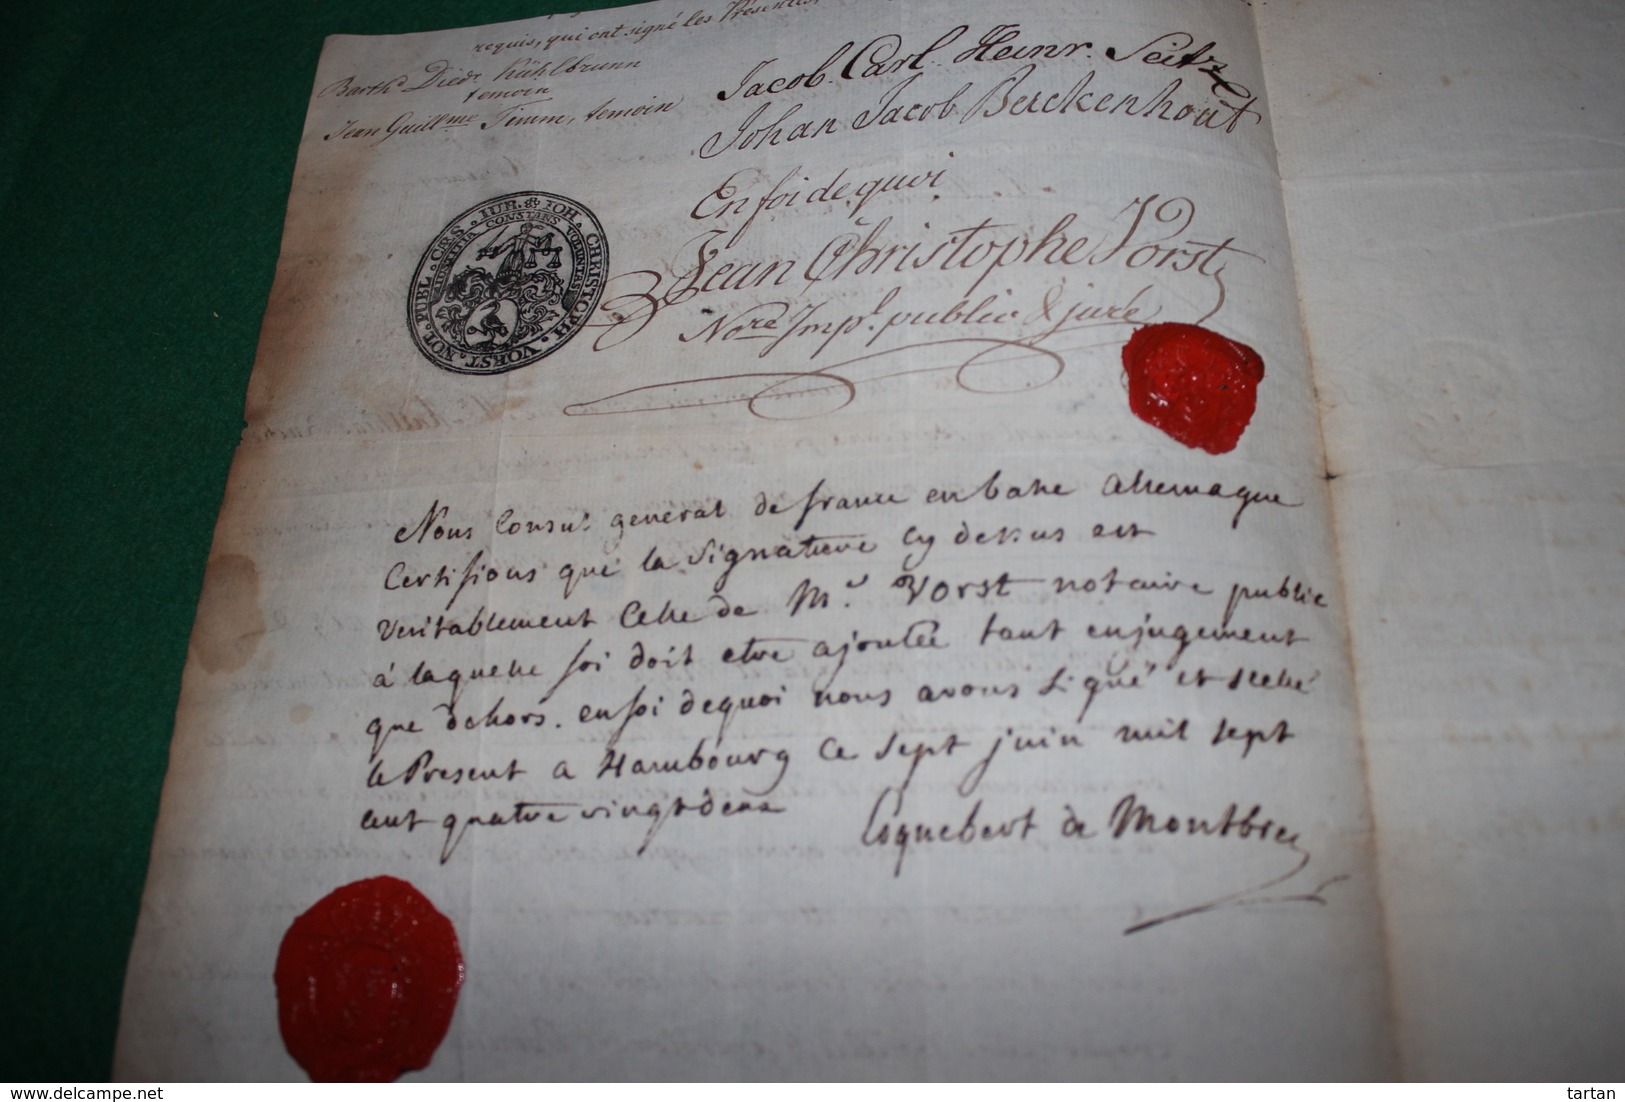 requis, qui ont signé les Présentes,
Barthd Diedr Kühlbrunn
temoin
Jean Guillme Timm, temoin
Jacob. Carl. Heinr. Seitz
Johan Jacob Berckenhout
En foi de quoi
Jean Christophe Vorst
Nore Impl. public & juré
NOT. PUBL. CÆS. IUR. & IOH. CHRISTOPH. VORST.
IUSTITIA CONSTANS VOLUNTAS
Nous Consul general de france en basse allemagne
Certifions que la signature cy dessus est
veritablement Celle de Mr. Vorst notaire public
á laquelle foi doit etre ajoutée tant en jugement
que dehors. en foi de quoi nous avons signé et scellé
le Present a Hambourg ce sept juin mil sept
cent quatre vingt deux
Coquebert de Montbret
delcampe.net
tartan